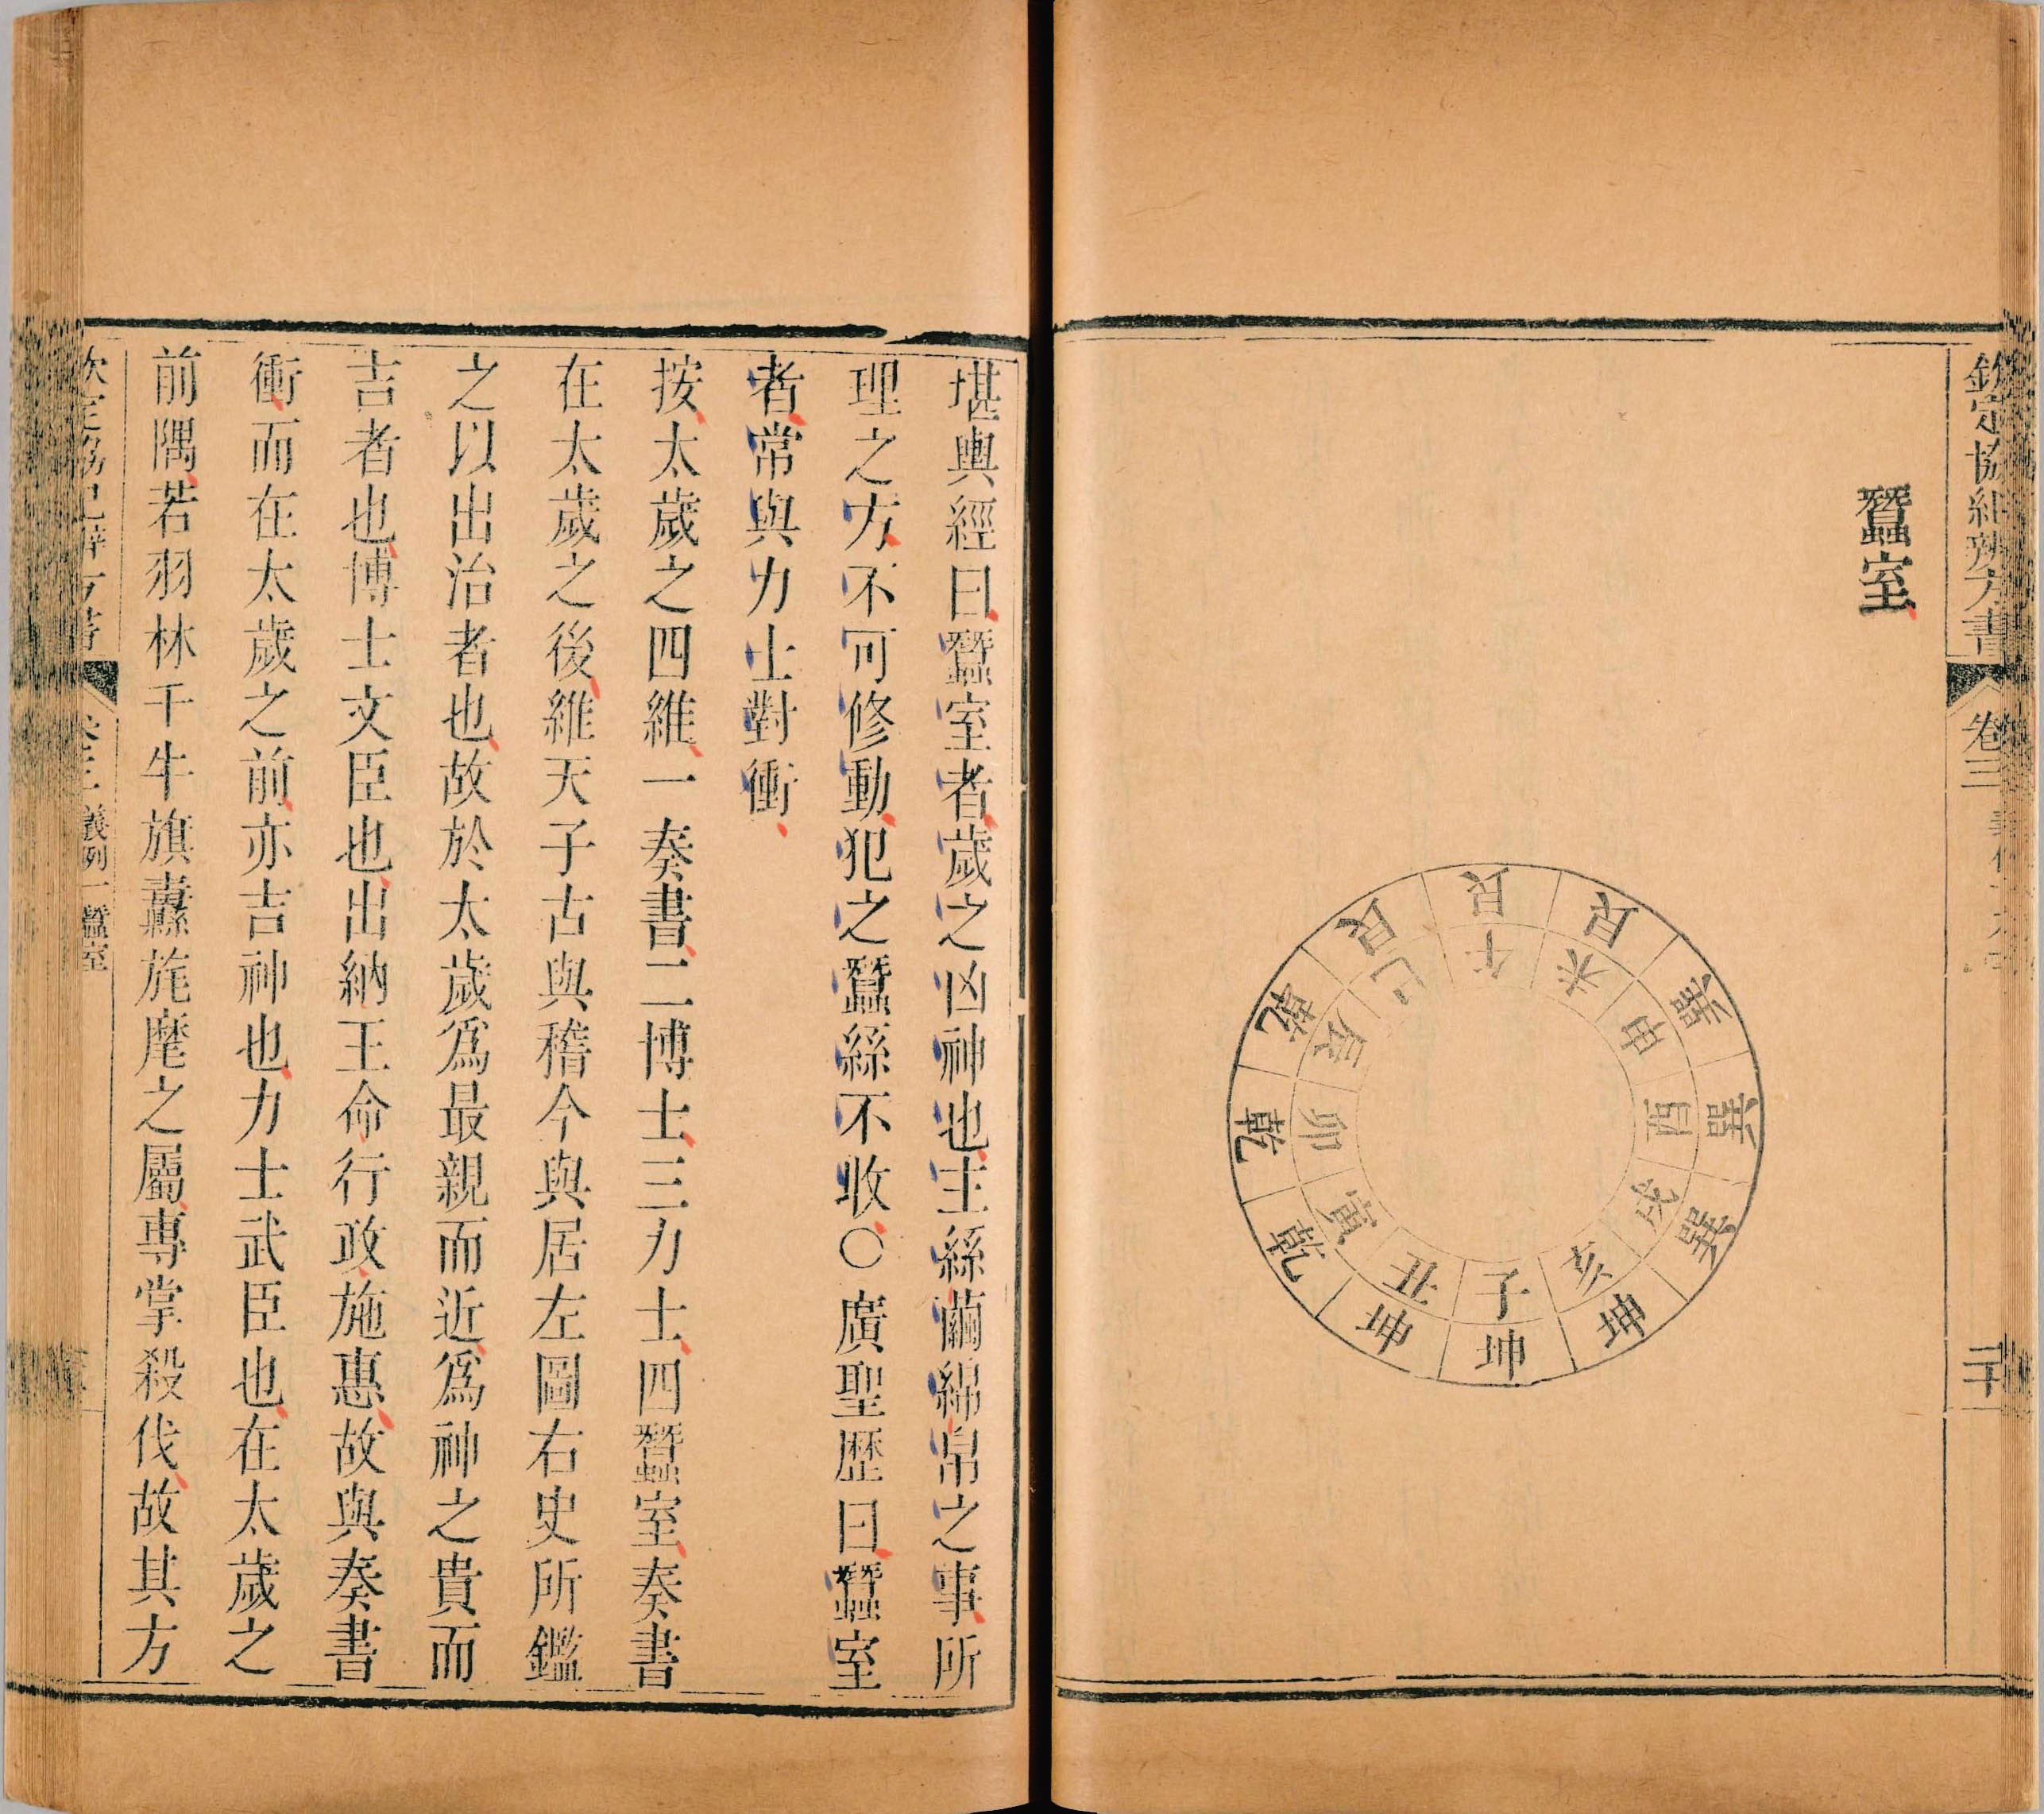 欽定協紀辨方書 卷三 二十
蠶室
艮 艮 艮 巽 巽 巽 坤 坤 坤 乾 乾 乾
午 未 申 酉 戌 亥 子 丑 寅 卯 辰 巳
堪輿經曰蠶室者歲之凶神也主絲繭綿帛之事所
理之方不可修動犯之蠶絲不收〇廣聖歴曰蠶室
者常與力士對衝
按太歲之四維一奏書二博士三力士四蠶室奏書
在太歲之後維天子古與稽今與居左圖右史所鑑
之以出治者也故於太歲爲最親而近爲神之貴而
吉者也博士文臣也出納王命行政施惠故與奏書
衝而在太歲之前亦吉神也力士武臣也在太歲之
前隅若羽林千牛旗纛旄麾之屬專掌殺伐故其方
義例一蠶室